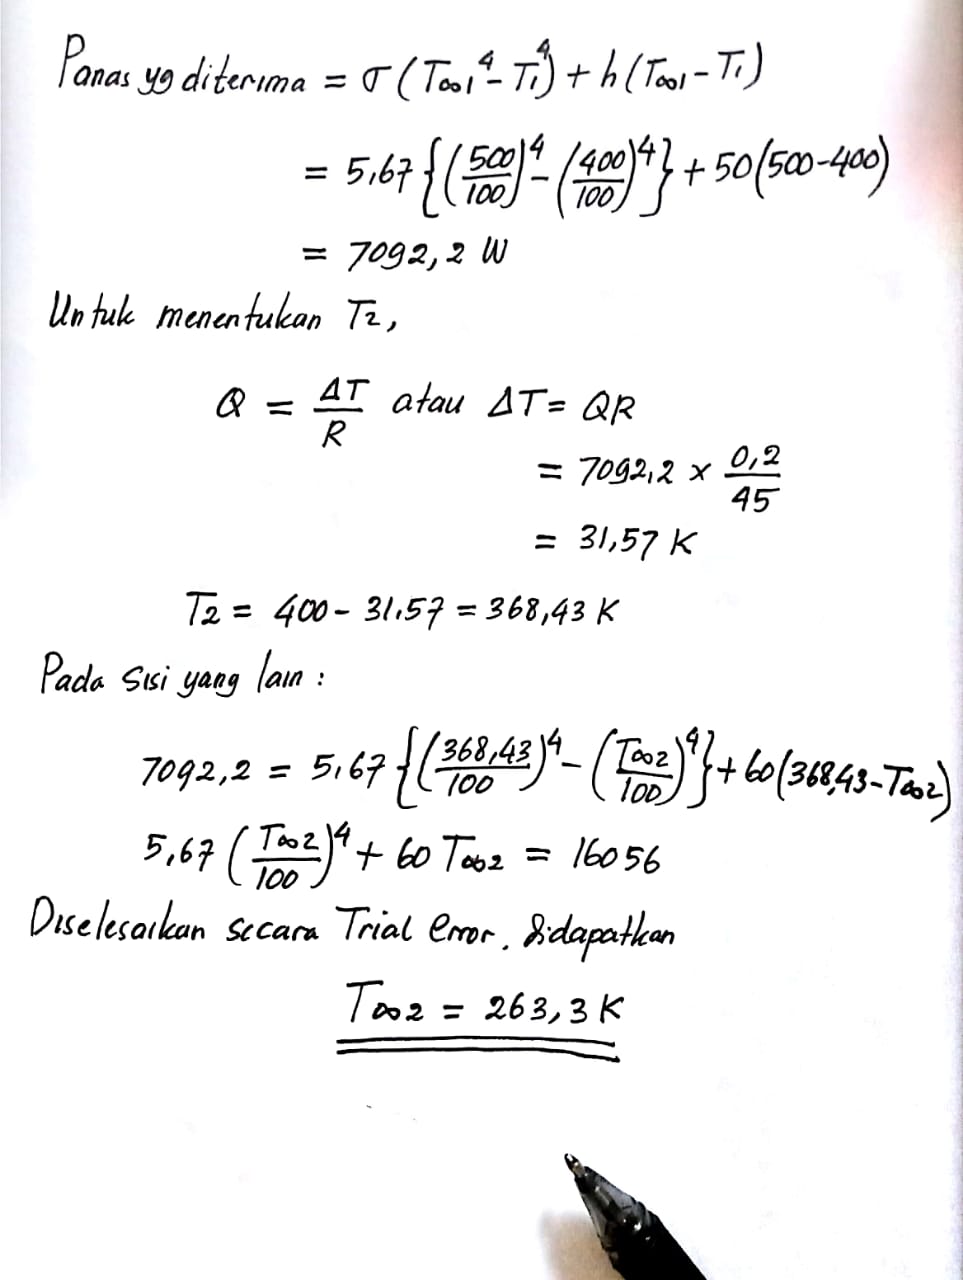 Panas yg diterima = σ (T∞1⁴ - T1⁴) + h (T∞1 - T1)
= 5,67 {(500/100)⁴ - (400/100)⁴} + 50 (500-400)
= 7092,2 W
Untuk menentukan T2,
Q = ΔT/R atau ΔT = QR
= 7092,2 x 0,2/45
= 31,57 K
T2 = 400 - 31,57 = 368,43 K
Pada sisi yang lain :
7092,2 = 5,67 {(368,43/100)⁴ - (T∞2/100)⁴} + 60 (368,43 - T∞2)
5,67 (T∞2/100)⁴ + 60 T∞2 = 16056
Diselesaikan secara Trial Error, didapatkan
T∞2 = 263,3 K